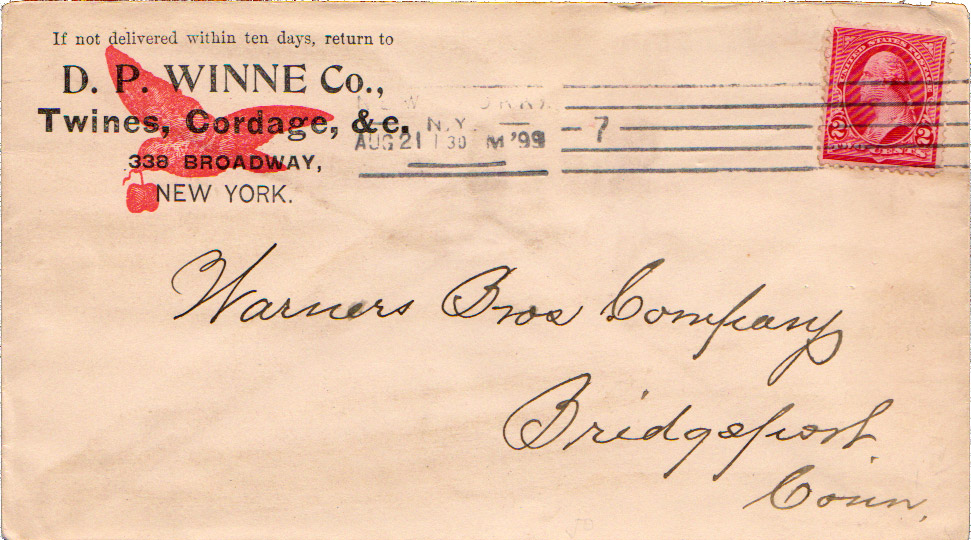 If not delivered within ten days, return to
D. P. WINNE Co.,
Twines, Cordage, &c,
338 BROADWAY,
NEW YORK.
NEW YORK
N.Y.
AUG 21 1 30 M '99
7
UNITED STATES POSTAGE
2 2
CENTS
Warners Bros Company
Bridgeport
Conn.